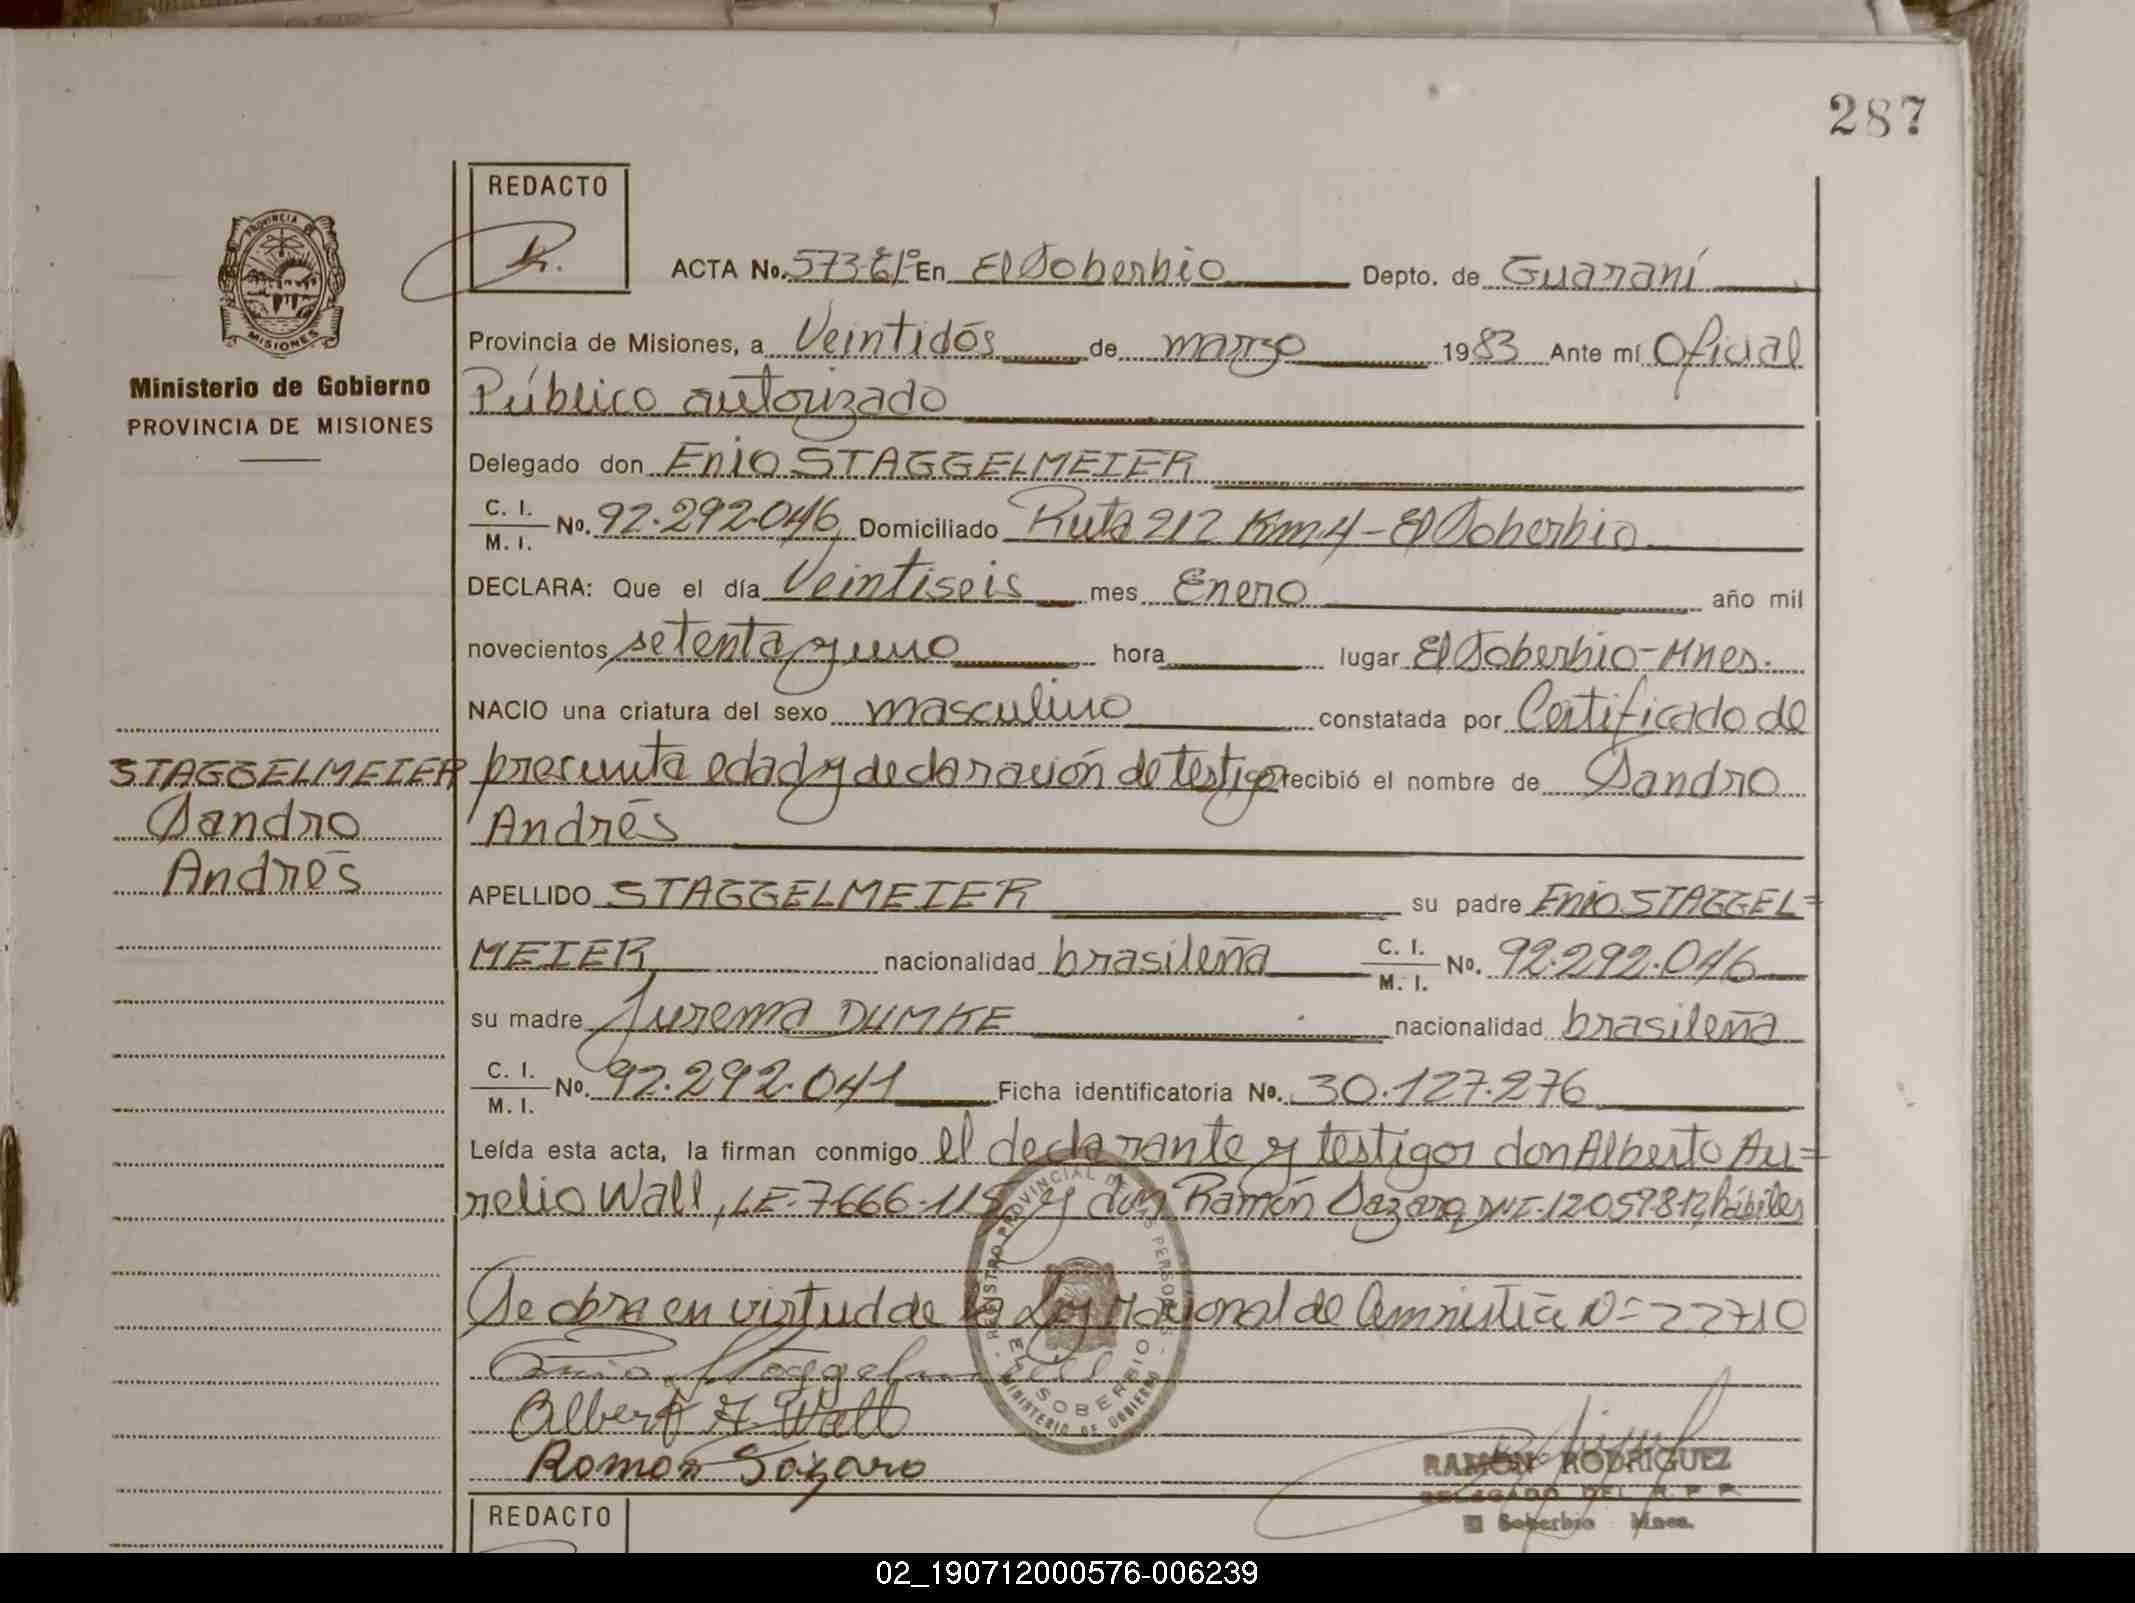 287
REDACTO
PROVINCIA
MISIONES
ACTA No. 573 En El Soberbio Depto. de Guaraní
Provincia de Misiones, a Veintidós de marzo 1983 Ante mí Oficial
Ministerio de Gobierno
Público autorizado
PROVINCIA DE MISIONES
Delegado don Enio STAGGELMEIER
C. I. M. I. No. 92.292.046 Domiciliado Ruta 212 Km 4 - El Soberbio
DECLARA: Que el día Veintiseis mes Enero año mil
novecientos setenta y uno hora lugar El Soberbio - Mnes.
NACIO una criatura del sexo masculino constatada por Certificado de
STAGGELMEIER presunta edad y declaración de testigos recibió el nombre de Sandro
Sandro Andrés
Andrés APELLIDO STAGGELMEIER su padre Enio STAGGEL=
MEIER nacionalidad brasileña C. I. M. I. No. 92.292.046
su madre Jurema DUMKE nacionalidad brasileña
C. I. M. I. No. 92.292.041 Ficha identificatoria No. 30.127.276
Leída esta acta, la firman conmigo el declarante y testigos don Alberto Au=
relio Wall, LE. 7666.115 y don Ramón Sazaro, DNI. hábiles
REGISTRO PROVINCIAL DE PERSONAS
EL SOBERBIO
MINISTERIO DE GOBIERNO
Se obra en virtud de la Ley Nacional de Amnistía N= 22710
Enio Staggelmeier
Albert A. Wall
Ramon Sazaro
RAMÓN RODRIGUEZ
DELEGADO DEL R. P. P.
El Soberbio Mnes.
REDACTO
02_190712000576-006239